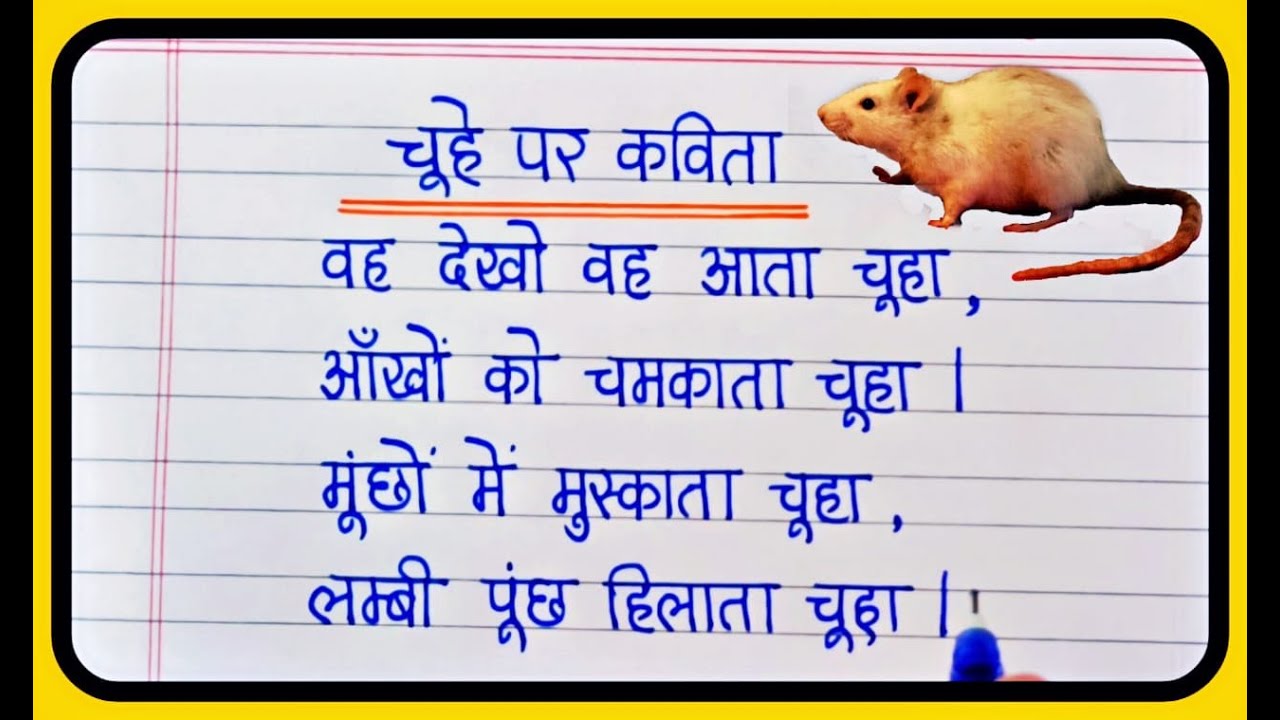 चूहे पर कविता
वह देखो वह आता चूहा,
आँखों को चमकाता चूहा।
मूंछों में मुस्काता चूहा,
लम्बी पूंछ हिलाता चूहा।